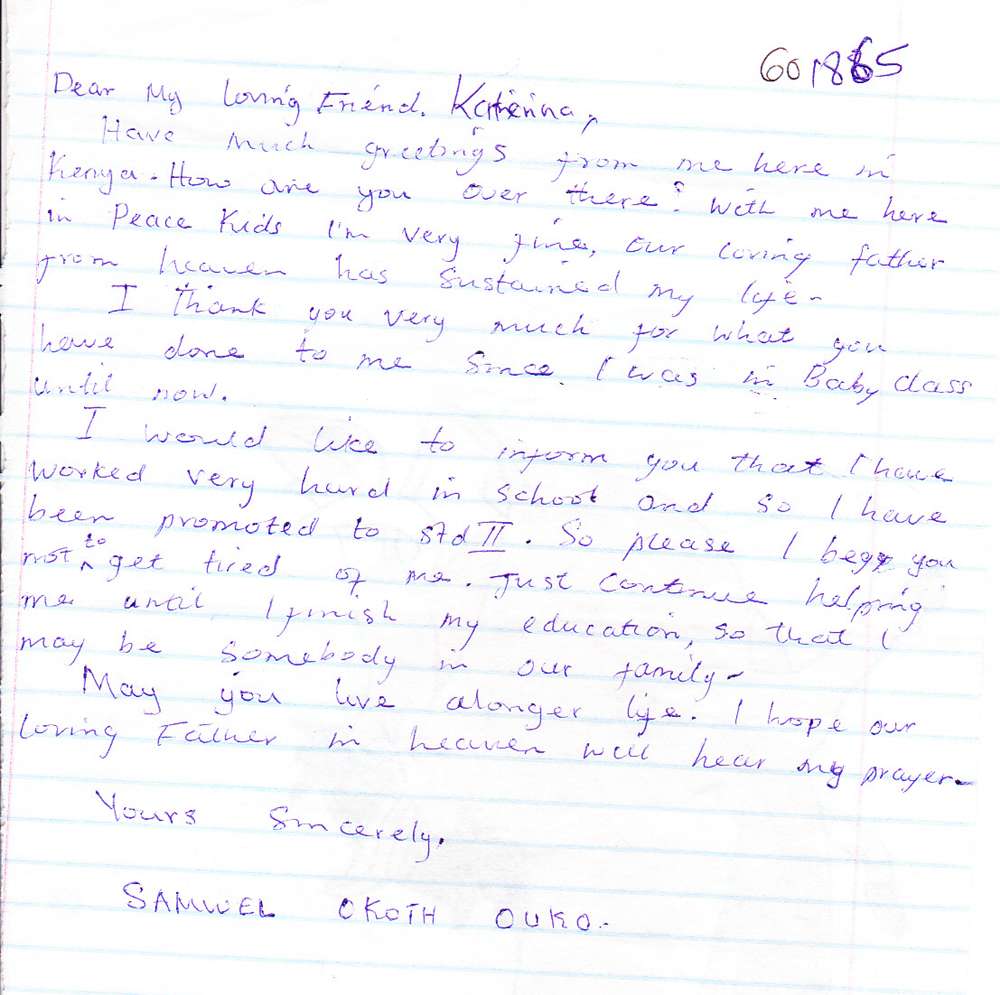 601865
Dear My loving Friend. Katerina,
Have much greetings from me here in
Kenya. How are you over there? With me here
in Peace Kids I'm very fine, our loving father
from heaven has sustained my life-
I thank you very much for what you
have done to me since I was in Baby class
until now.
I would like to inform you that I have
worked very hard in school and so I have
been promoted to std II. So please I beg you
not to get tired of me. Just continue helping
me until I finish my education, so that I
may be somebody in our family-
May you live alonger life. I hope our
loving Father in heaven will hear my prayer-
Yours Sincerely.
SAMWEL OKOTH OUKO.-